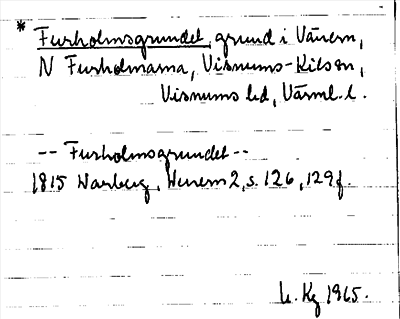 * Furholmsgrundet, grund i Vänern,
N Furholmarna, Visnums-Kilsn,
Visnums hd, Värml. l.
-- Furholmsgrundet --
1815 Warberg, Wenern 2, s. 126, 129 f.
Kg 1965.